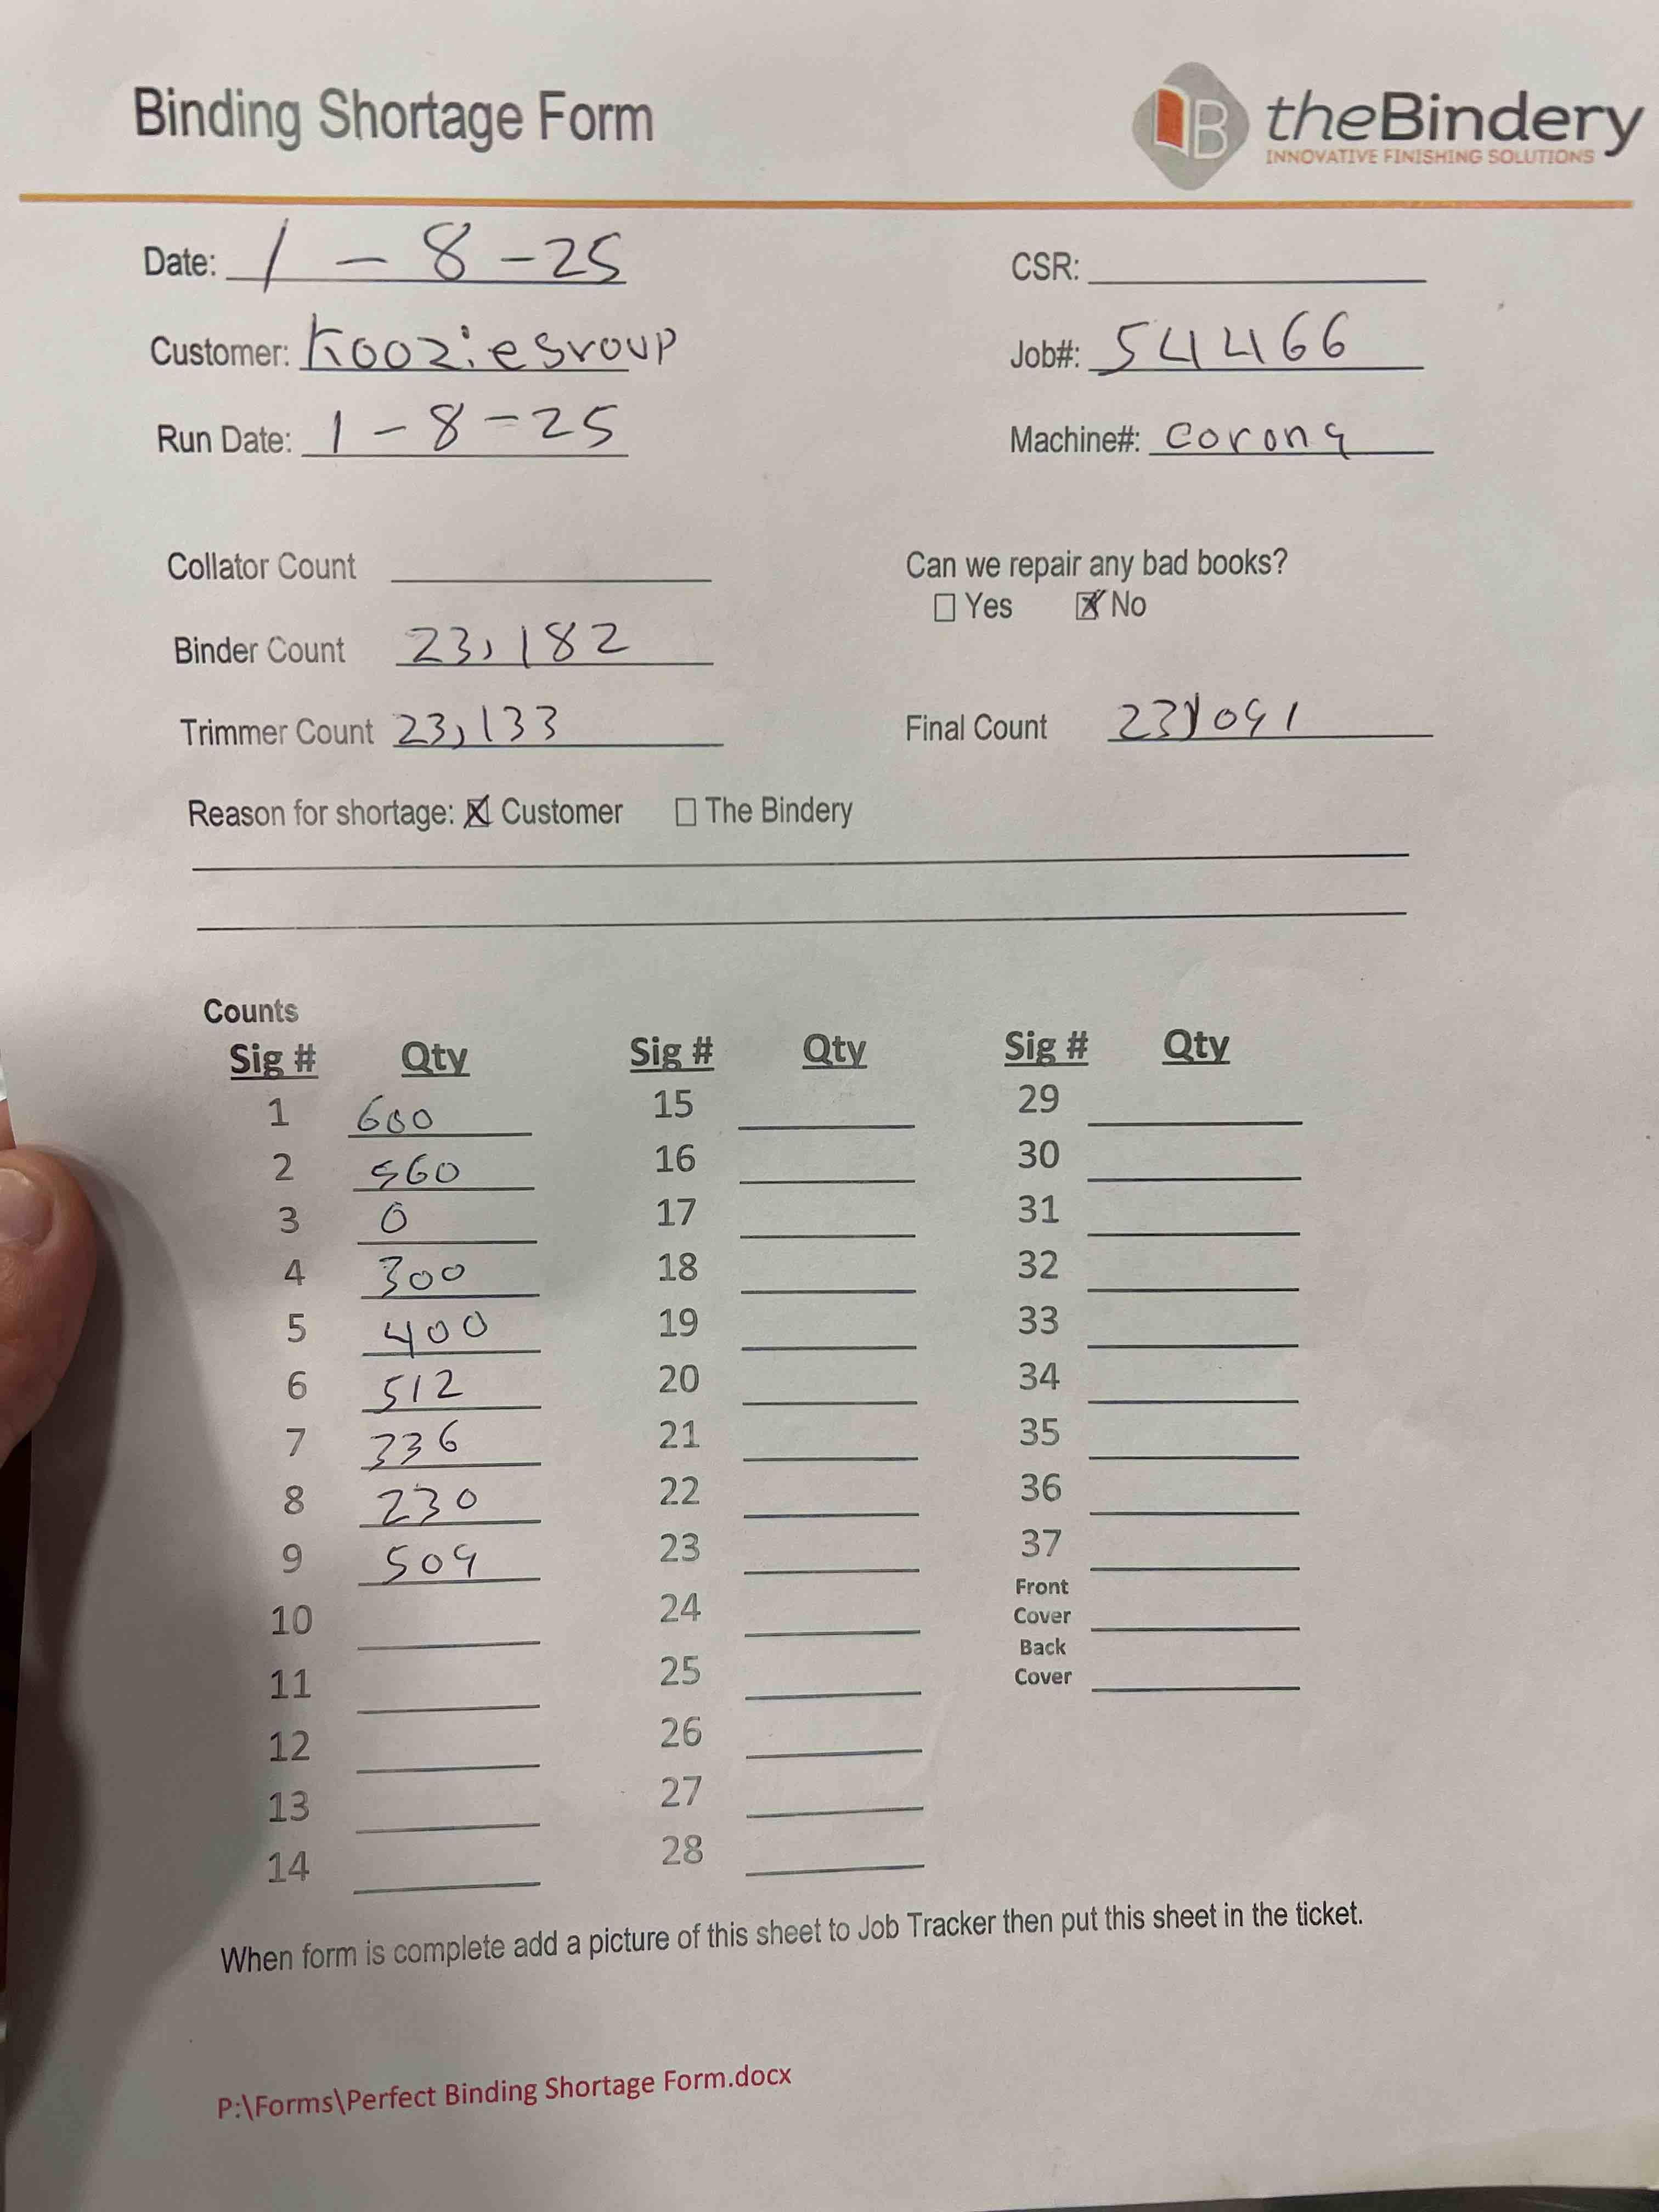 Binding Shortage Form
B theBindery
INNOVATIVE FINISHING SOLUTIONS
Date: 1 - 8 - 25
CSR:
Customer: Kooziegroup
Job#: 54466
Run Date: 1 - 8 - 25
Machine#: corona
Collator Count
Can we repair any bad books?
☐ Yes ☒ No
Binder Count 23,182
Trimmer Count 23,133
Final Count 23,091
Reason for shortage: ☒ Customer ☐ The Bindery
Counts
Sig # Qty Sig # Qty Sig # Qty
1 600 15 29
2 560 16 30
3 0 17 31
4 300 18 32
5 400 19 33
6 512 20 34
7 336 21 35
8 230 22 36
9 509 23 37
10 24 Front Cover
11 25 Back Cover
12 26
13 27
14 28
When form is complete add a picture of this sheet to Job Tracker then put this sheet in the ticket.
P:\Forms\Perfect Binding Shortage Form.docx